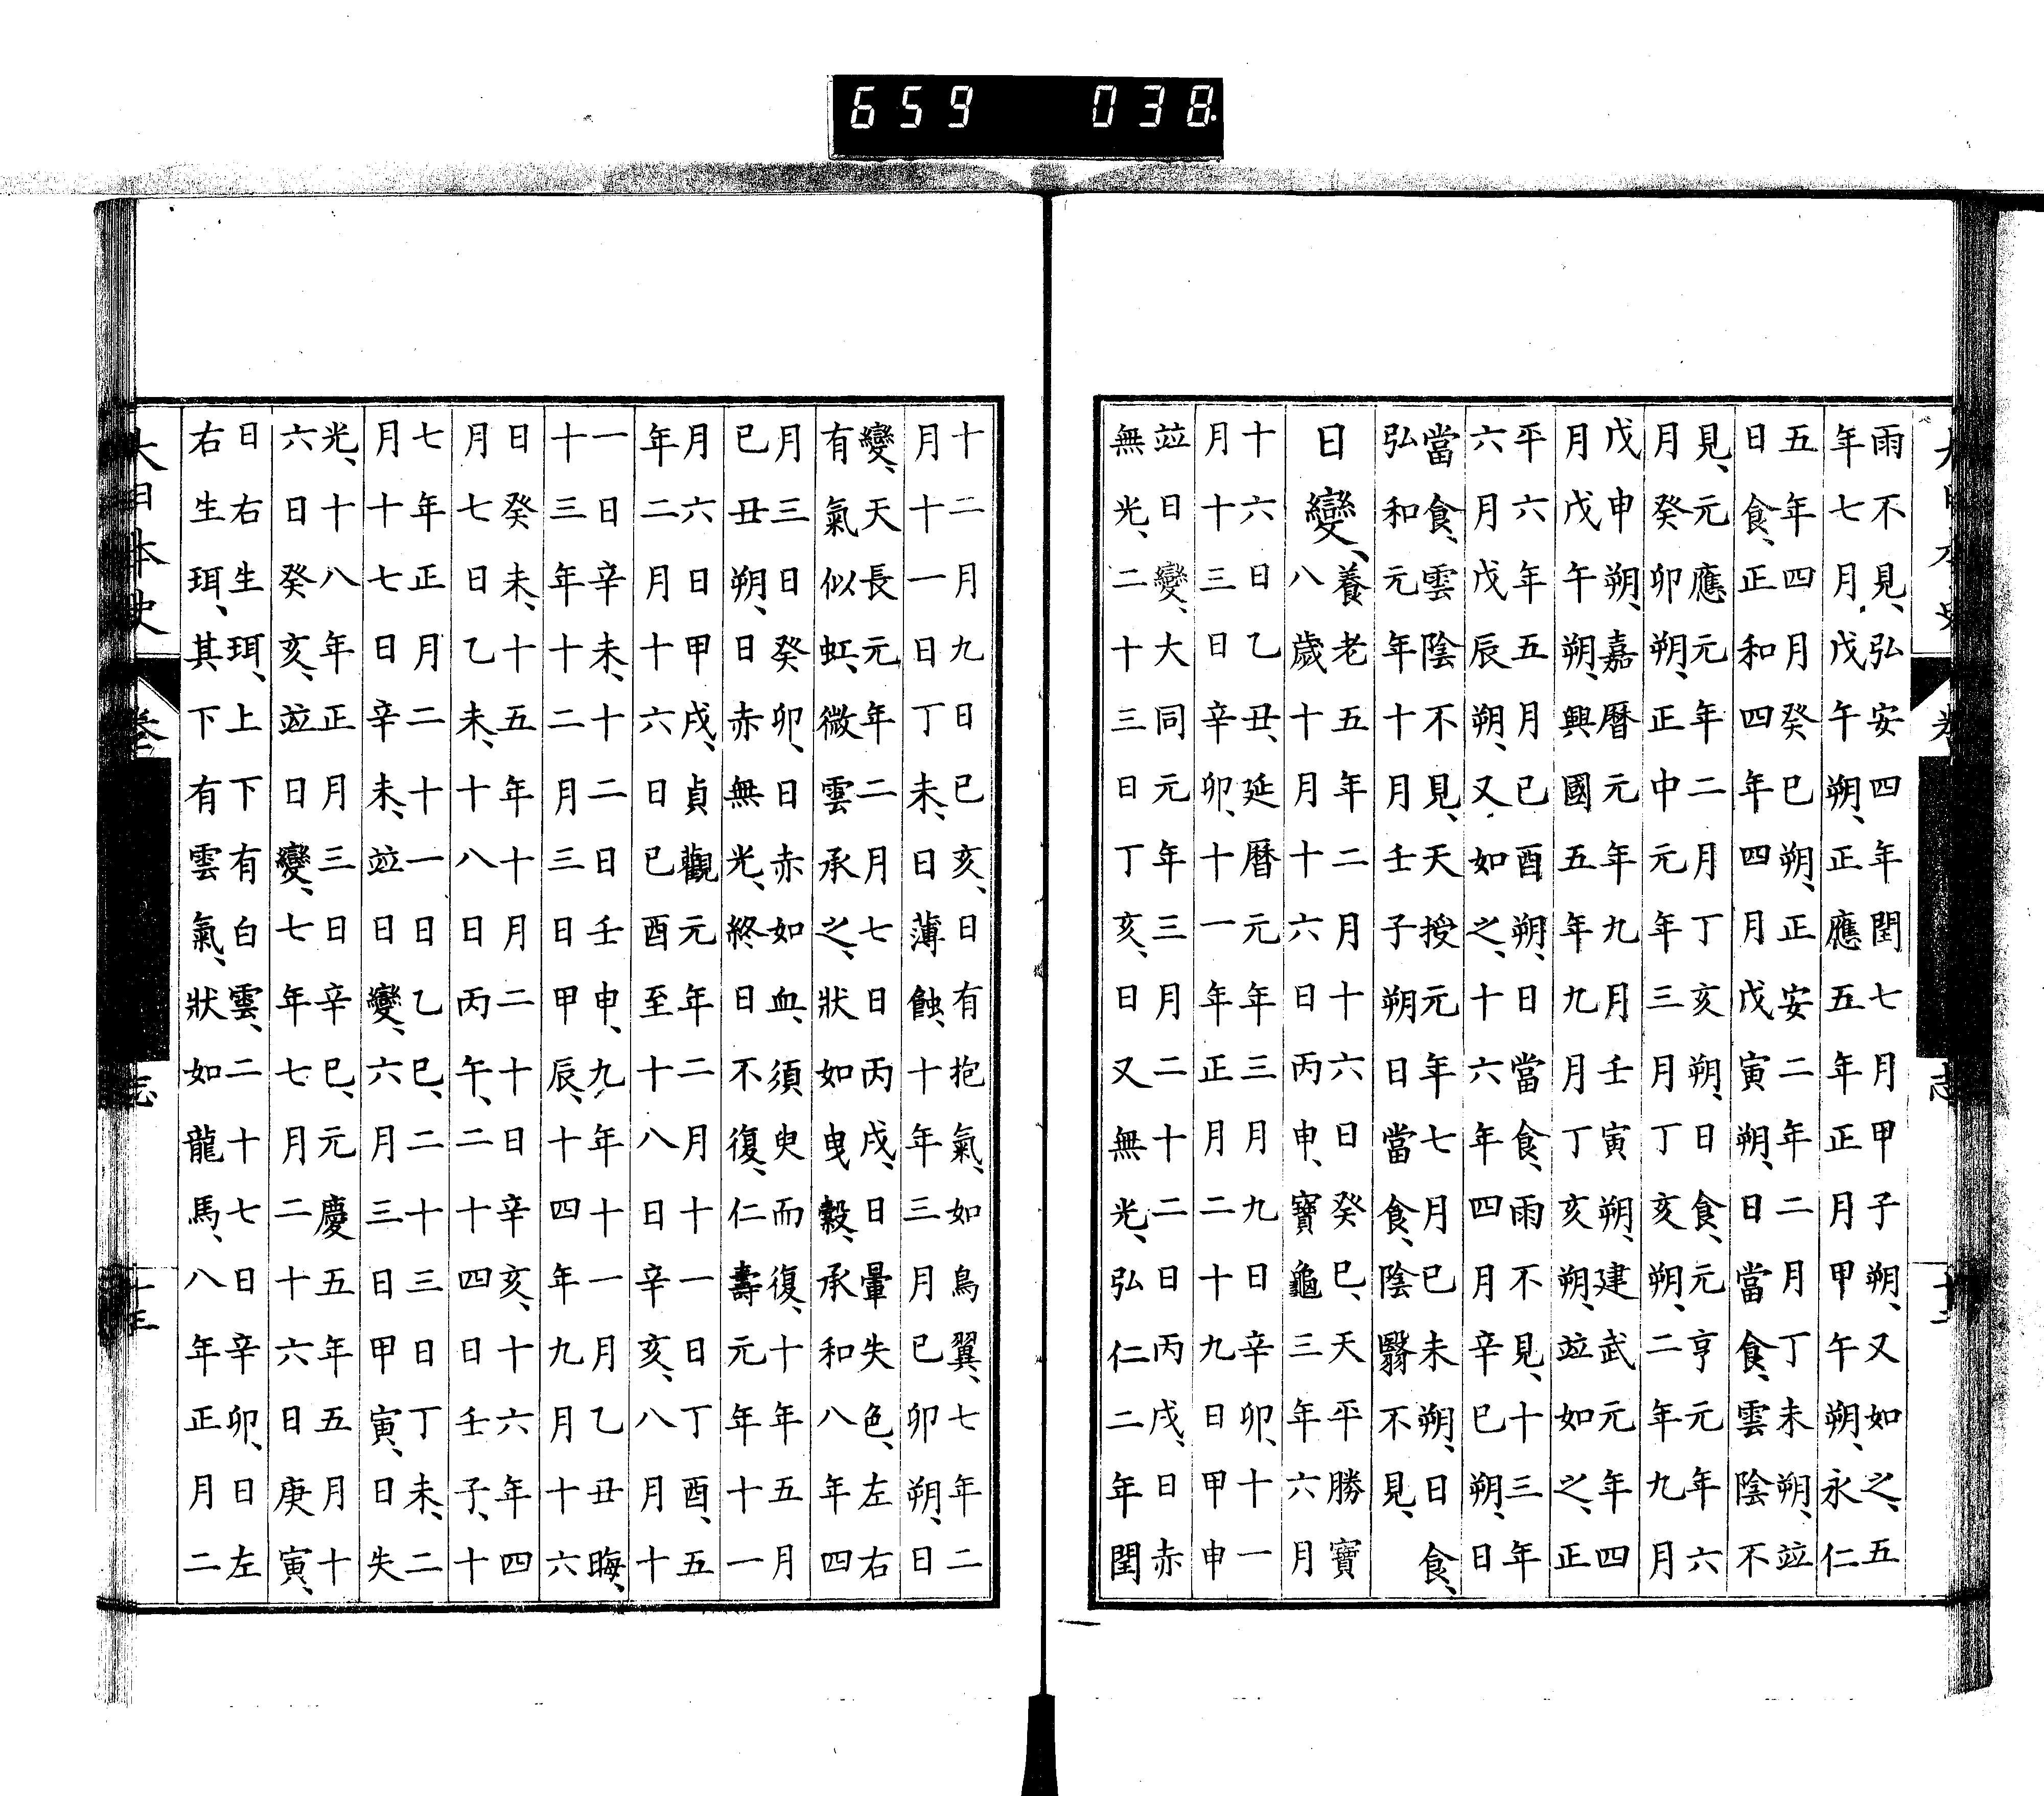 659 038
雨不見、弘安四年閏七月甲子朔、又如之、五
年七月、戊午朔、正應五年正月甲午朔、永仁
五年四月癸巳朔、正安二年二月丁未朔、竝
日食、正和四年四月戊寅朔、日當食、雲陰不
見、元應元年二月丁亥朔、日食、元亨元年六
月癸卯朔、正中元年三月丁亥朔、二年九月
戊申朔、嘉暦元年九月壬寅朔、建武元年四
月戊午朔、興國五年九月丁亥朔、竝如之、正
平六年五月己酉朔、日當食、雨不見、十三年
六月戊辰朔、又如之、十六年四月辛巳朔、日
當食、雲陰不見、天授元年七月己未朔、日食、
弘和元年十月壬子朔日當食、陰翳不見、
日變、養老五年二月十六日癸巳、天平勝寶
八歲十月十六日丙申、寶龜三年六月
十六日乙丑、延暦元年三月九日辛卯、十一
月十三日辛卯、十一年正月二十九日甲申
竝日變、大同元年三月二十二日丙戌、日赤
無光、二十三日丁亥、日又無光、弘仁二年閏
十二月九日己亥、日有抱氣、如鳥翼、七年二
月十一日丁未、日薄蝕、十年三月己卯朔、日
變、天長元年二月七日丙戌、日暈失色、左右
有氣似虹、微雲承之、狀如曳縠、承和八年四
月三日癸卯、日赤如血、須臾而復、十年五月
己丑朔、日赤無光、終日不復、仁壽元年十一
月六日甲戌、貞觀元年二月十一日丁酉、五
年二月十六日己酉至十八日辛亥、八月十
一日辛未、十二日壬申、九年十一月乙丑晦、
十三年十二月三日甲辰、十四年九月十六
日癸未、十五年十月二十日辛亥、十六年四
月七日乙未、十八日丙午、二十四日壬子、十
七年正月二十一日乙巳、二十三日丁未、二
月十七日辛未、竝日變、六月三日甲寅、日失
光、十八年正月三日辛巳、元慶五年五月十
六日癸亥、竝日變、七年七月二十六日庚寅、
日右生珥、上下有白雲、二十七日辛卯、日左
右生珥、其下有雲氣、狀如龍馬、八年正月二
大日本史 卷 志 十三